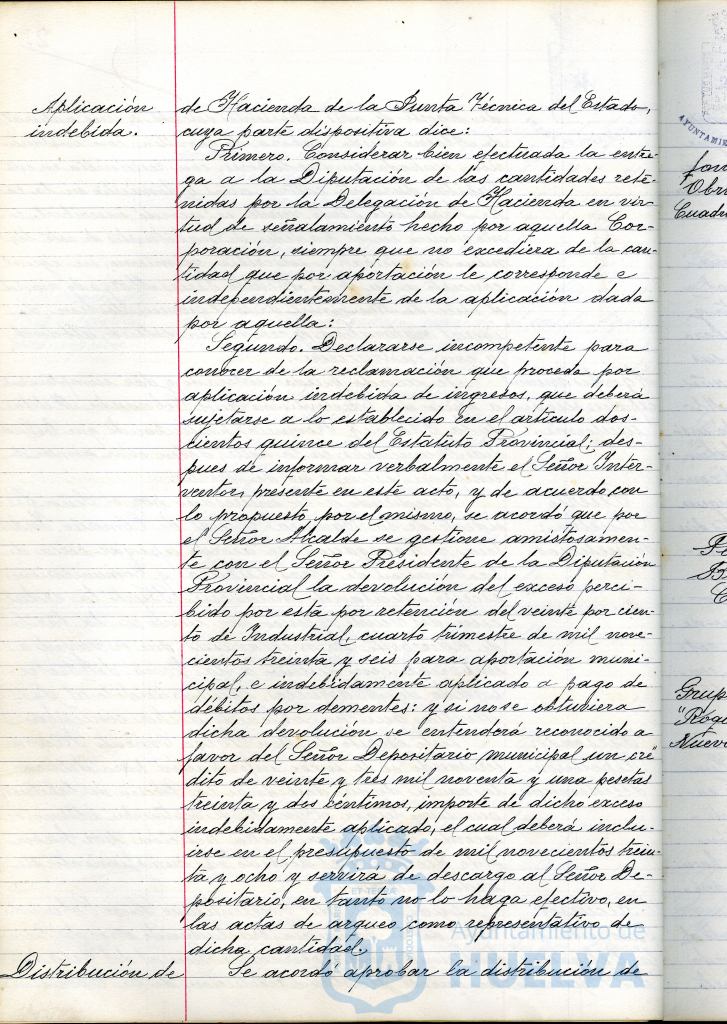 Aplicación
indebida.
de Hacienda de la Junta Técnica del Estado,
cuya parte dispositiva dice:
Primero. Considerar bien efectuada la entre-
ga a la Diputación de las cantidades rete-
nidas por la Delegación de Hacienda en vir-
tud de señalamiento hecho por aquella Cor-
poración, siempre que no excediera de la can-
tidad que por aportación le corresponde e
independientemente de la aplicación dada
por aquella:
Segundo. Declararse incompetente para
conocer de la reclamación que proceda por
aplicación indebida de ingresos, que deberá
sujetarse a lo establecido en el artículo dos-
cientos quince del Estatuto Provincial; des-
pues de informar verbalmente el Señor Inter-
ventor, presente en este acto, y de acuerdo con
lo propuesto por el mismo, se acordó que por
el Señor Alcalde se gestione amistosamen-
te con el Señor Presidente de la Diputación
Provincial la devolución del exceso perci-
bido por esta por retención del veinte por cien-
to de Industrial, cuarto trimestre de mil nove-
cientos treinta y seis para aportación muni-
cipal, e indebidamente aplicado a pago de
débitos por dementes: y si no se obtuviera
dicha devolución se entenderá reconocido a
favor del Señor Depositario municipal un cré-
dito de veinte y tres mil noventa y una pesetas
treinta y dos céntimos, importe de dicho exceso
indebidamente aplicado, el cual deberá inclu-
irse en el presupuesto de mil novecientos trein-
ta y ocho y servirá de descargo al Señor De-
positario, en tanto no lo haga efectivo, en
las actas de arqueo como representativo de
dicha cantidad.
Distribución de
Se acordó aprobar la distribución de
Ayuntamiento de
HUELVA
AYUNTAMIE
Obr
Cuadr
Grup
Nuev